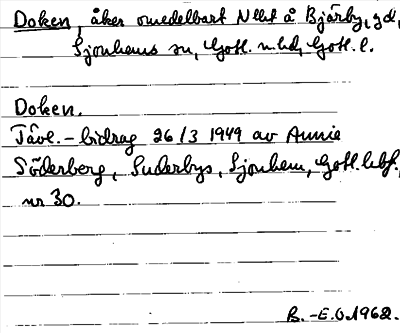 Doken, åker omedelbart N else å Bjärby, gd,
Sjonhems sn, Gotl. n. hd, Gotl. l.
Doken.
Tävl.-bidrag 26/3 1949 av Annie
Söderberg, Suderbys, Sjonhem, Gotl.
nr 30.
B.-E.O. 1962.